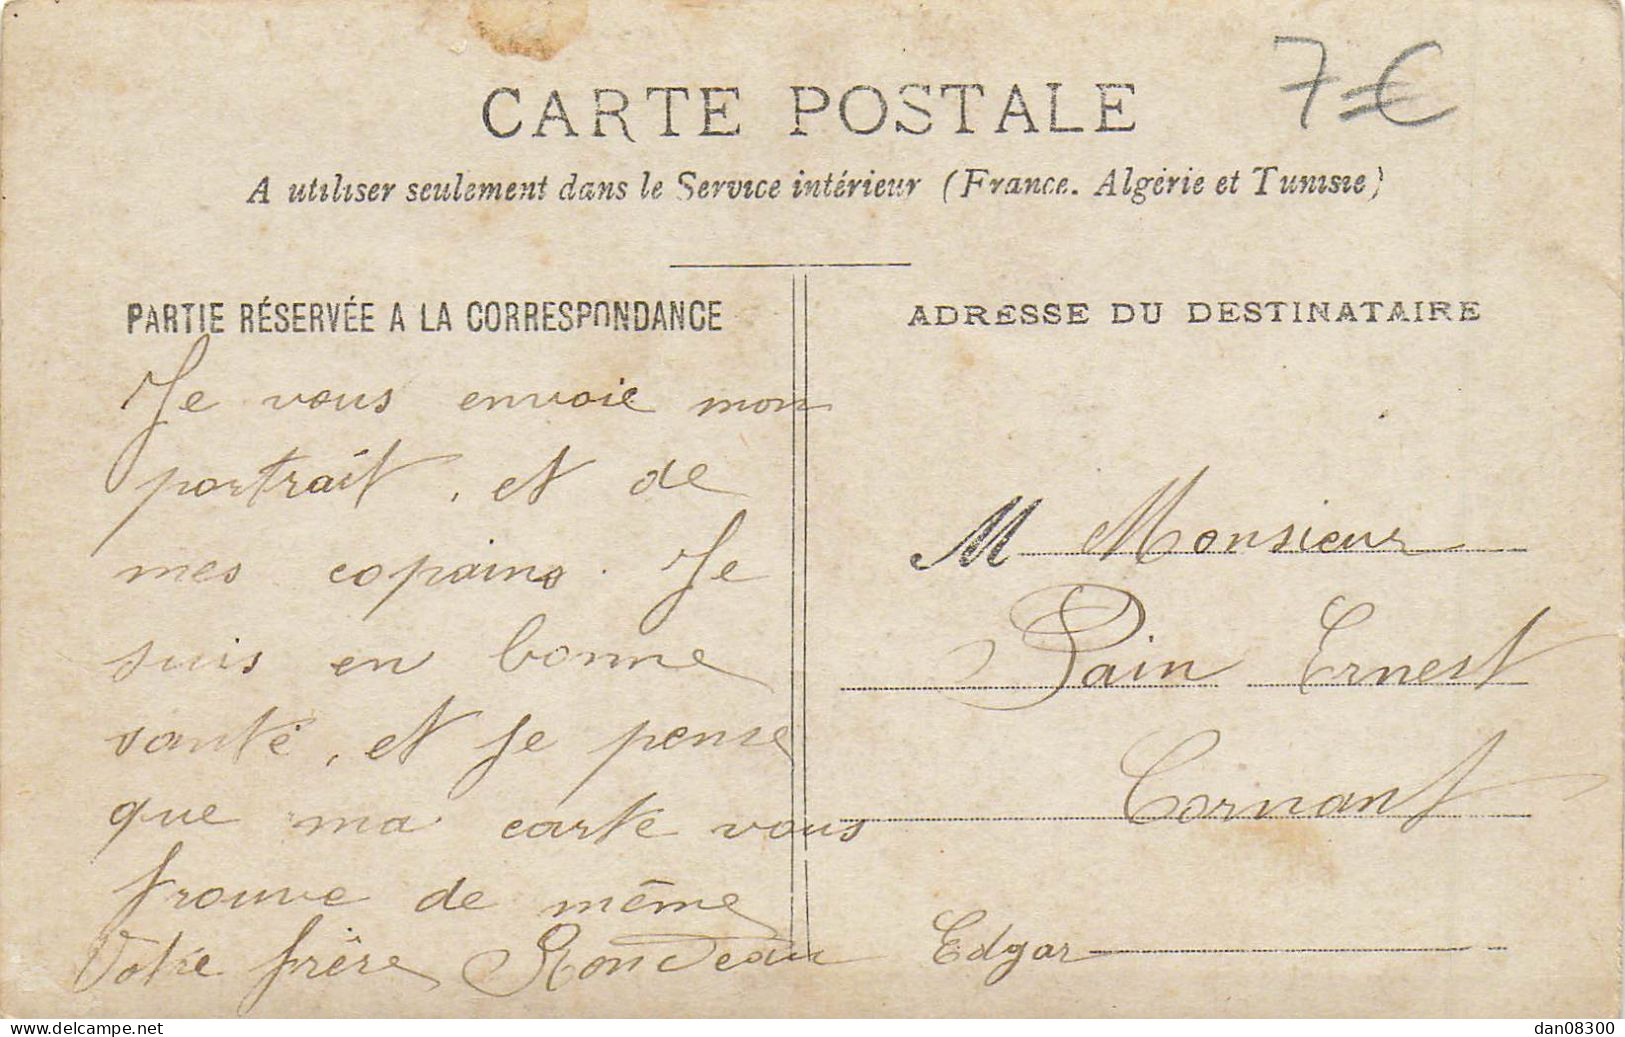 7 €
CARTE POSTALE
A utiliser seulement dans le Service intérieur (France. Algérie et Tunisie)
PARTIE RÉSERVÉE A LA CORRESPONDANCE
Je vous envoie mon
portrait, et de
mes copains. Je
suis en bonne
santé, et je pense
que ma carte vous
trouve de même
Votre frère Rondeau
ADRESSE DU DESTINATAIRE
M Monsieur
Pain Ernest
Cornant
Edgar
delcampe.net
dan08300